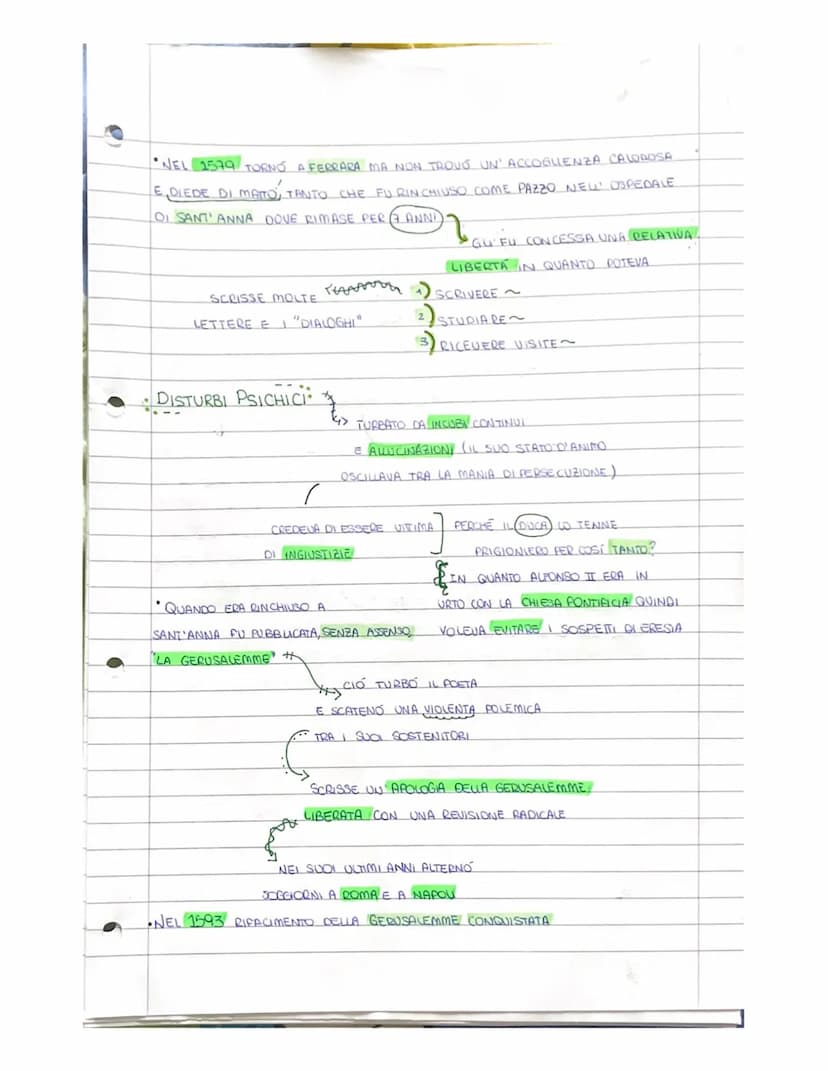 • NEL 1579 TORNÓ A FERRARA MA NON TROVÓ UN' ACCOGLIENZA CALOROSA
E DIEDE DI MATTO, TANTO CHE FU RINCHIUSO COME PAZZO NELL' OSPEDALE
DI SANT'ANNA DOVE RIMASE PER 7 ANNI
GLI FU CONCESSA UNA RELATIVA
LIBERTÁ IN QUANTO POTEVA
1) SCRIVERE ~
SCRISSE MOLTE
LETTERE E I "DIALOGHI"
2) STUDIARE ~
3) RICEVERE VISITE ~
DISTURBI PSICHICI:
TURBATO DA INCUBI CONTINUI
E ALLUCINAZIONI (IL SUO STATO D'ANIMO
OSCILLAVA TRA LA MANIA DI PERSECUZIONE)
CREDEVA DI ESSERE VITTIMA
DI INGIUSTIZIE
PERCHÉ IL DUCA LO TENNE
PRIGIONIERO PER COSÍ TANTO?
IN QUANTO ALFONSO II ERA IN
URTO CON LA CHIESA PONTIFICIA QUINDI
VOLEVA EVITARE I SOSPETTI DI ERESIA
• QUANDO ERA RINCHIUSO A
SANT'ANNA FU PUBBLICATA, SENZA ASSENSO,
"LA GERUSALEMME"
CIÓ TURBÓ IL POETA
E SCATENÓ UNA VIOLENTA POLEMICA
TRA I SUOI SOSTENITORI
SCRISSE UN'APOLOGIA DELLA GERUSALEMME
LIBERATA CON UNA REVISIONE RADICALE
NEI SUOI ULTIMI ANNI ALTERNÓ
SOGGIORNI A ROMA E A NAPOLI
• NEL 1593 RIFACIMENTO DELLA GERUSALEMME CONQUISTATA